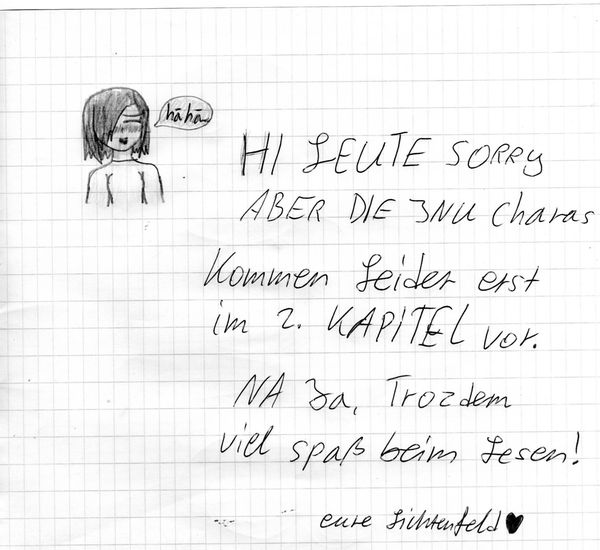 hähä...
HI LEUTE SORRY
ABER DIE JNU Charas
Kommen Leider erst
im 2. KAPITEL vor.
NA Ja, Trozdem
viel spaß beim Lesen!
eure Lichtenfeld♥